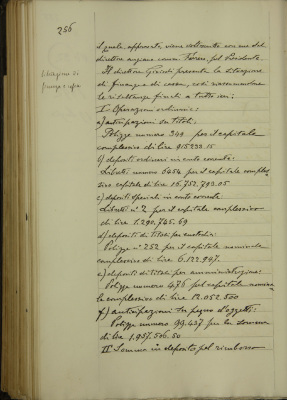 256
Situazione di
finanza e cassa
il quale approvato, viene sottoscritto
direttore
Il direttore presenta la situazione
di finanza e di cassa, così riassumendone
le risultanze finali a tutto ieri:
I° Operazioni ordinarie:
a) anticipazioni su titoli:
Polizze numero 349 per il capitale
complessivo di lire 915233.15
b) depositi ordinari in conto corrente:
Libretti numero 6454 per il capitale comples-
sivo capitale di lire 16.752,793.05
c) depositi speciali in conto corrente
Libretti n° 2 per il capitale complessivo
di lire 1.290,745.69
d) depositi di titoli per custodia:
Polizze n° 252 per il capitale nominale
complessivo di lire 6.122.947.
e) depositi di titoli per amministrazione:
Polizze numero 476 pel capitale nomina-
le complessivo di lire 12.052.500
f) anticipazioni su pegno d'oggetti:
Polizze numero 99.437 per la somma
di lire 1.957.506.50
II° Somma in deposito pel rimborso